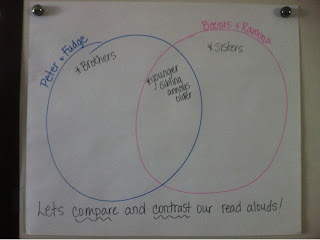 Peter + Fudge
Beezus + Ramona
*Brothers
*Sisters
*younger
sibling
annoys
older
Lets compare and contrast our read alouds!